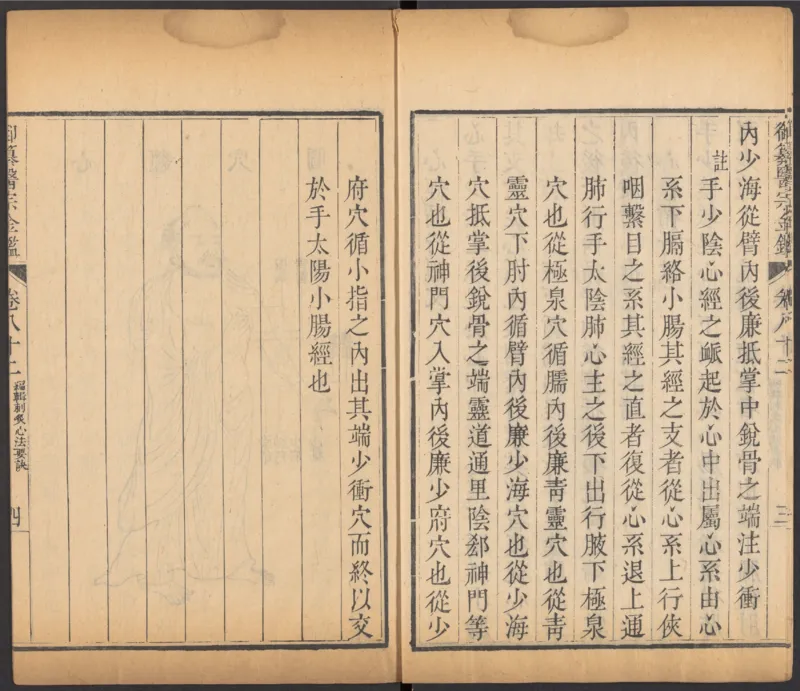 御纂醫宗金鑑
卷八十二
三
內少海從臂內後廉抵掌中銳骨之端注少衝
註
手少陰心經之脈起於心中出屬心系由心
系下膈絡小腸其經之支者從心系上行俠
咽繫目之系其經之直者復從心系退上通
肺行手太陰肺心主之後下出行腋下極泉
穴也從極泉穴循臑內後廉青靈穴也從青
靈穴下肘內循臂內後廉少海穴也從少海
穴抵掌後銳骨之端靈道通里陰郄神門等
穴也從神門穴入掌內後廉少府穴也從少
府穴循小指之內出其端少衝穴而終以交
於手太陽小腸經也
御纂醫宗金鑑
卷八十二
編輯刺灸心法要訣
四